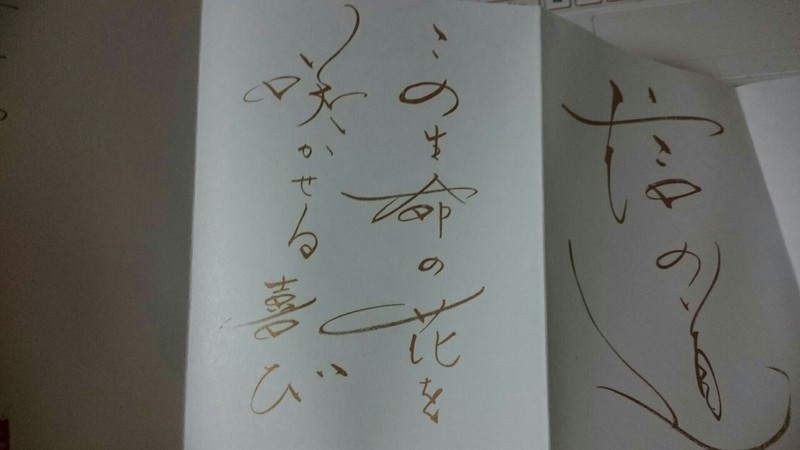 信の道
この生命の花を
咲かせる喜び